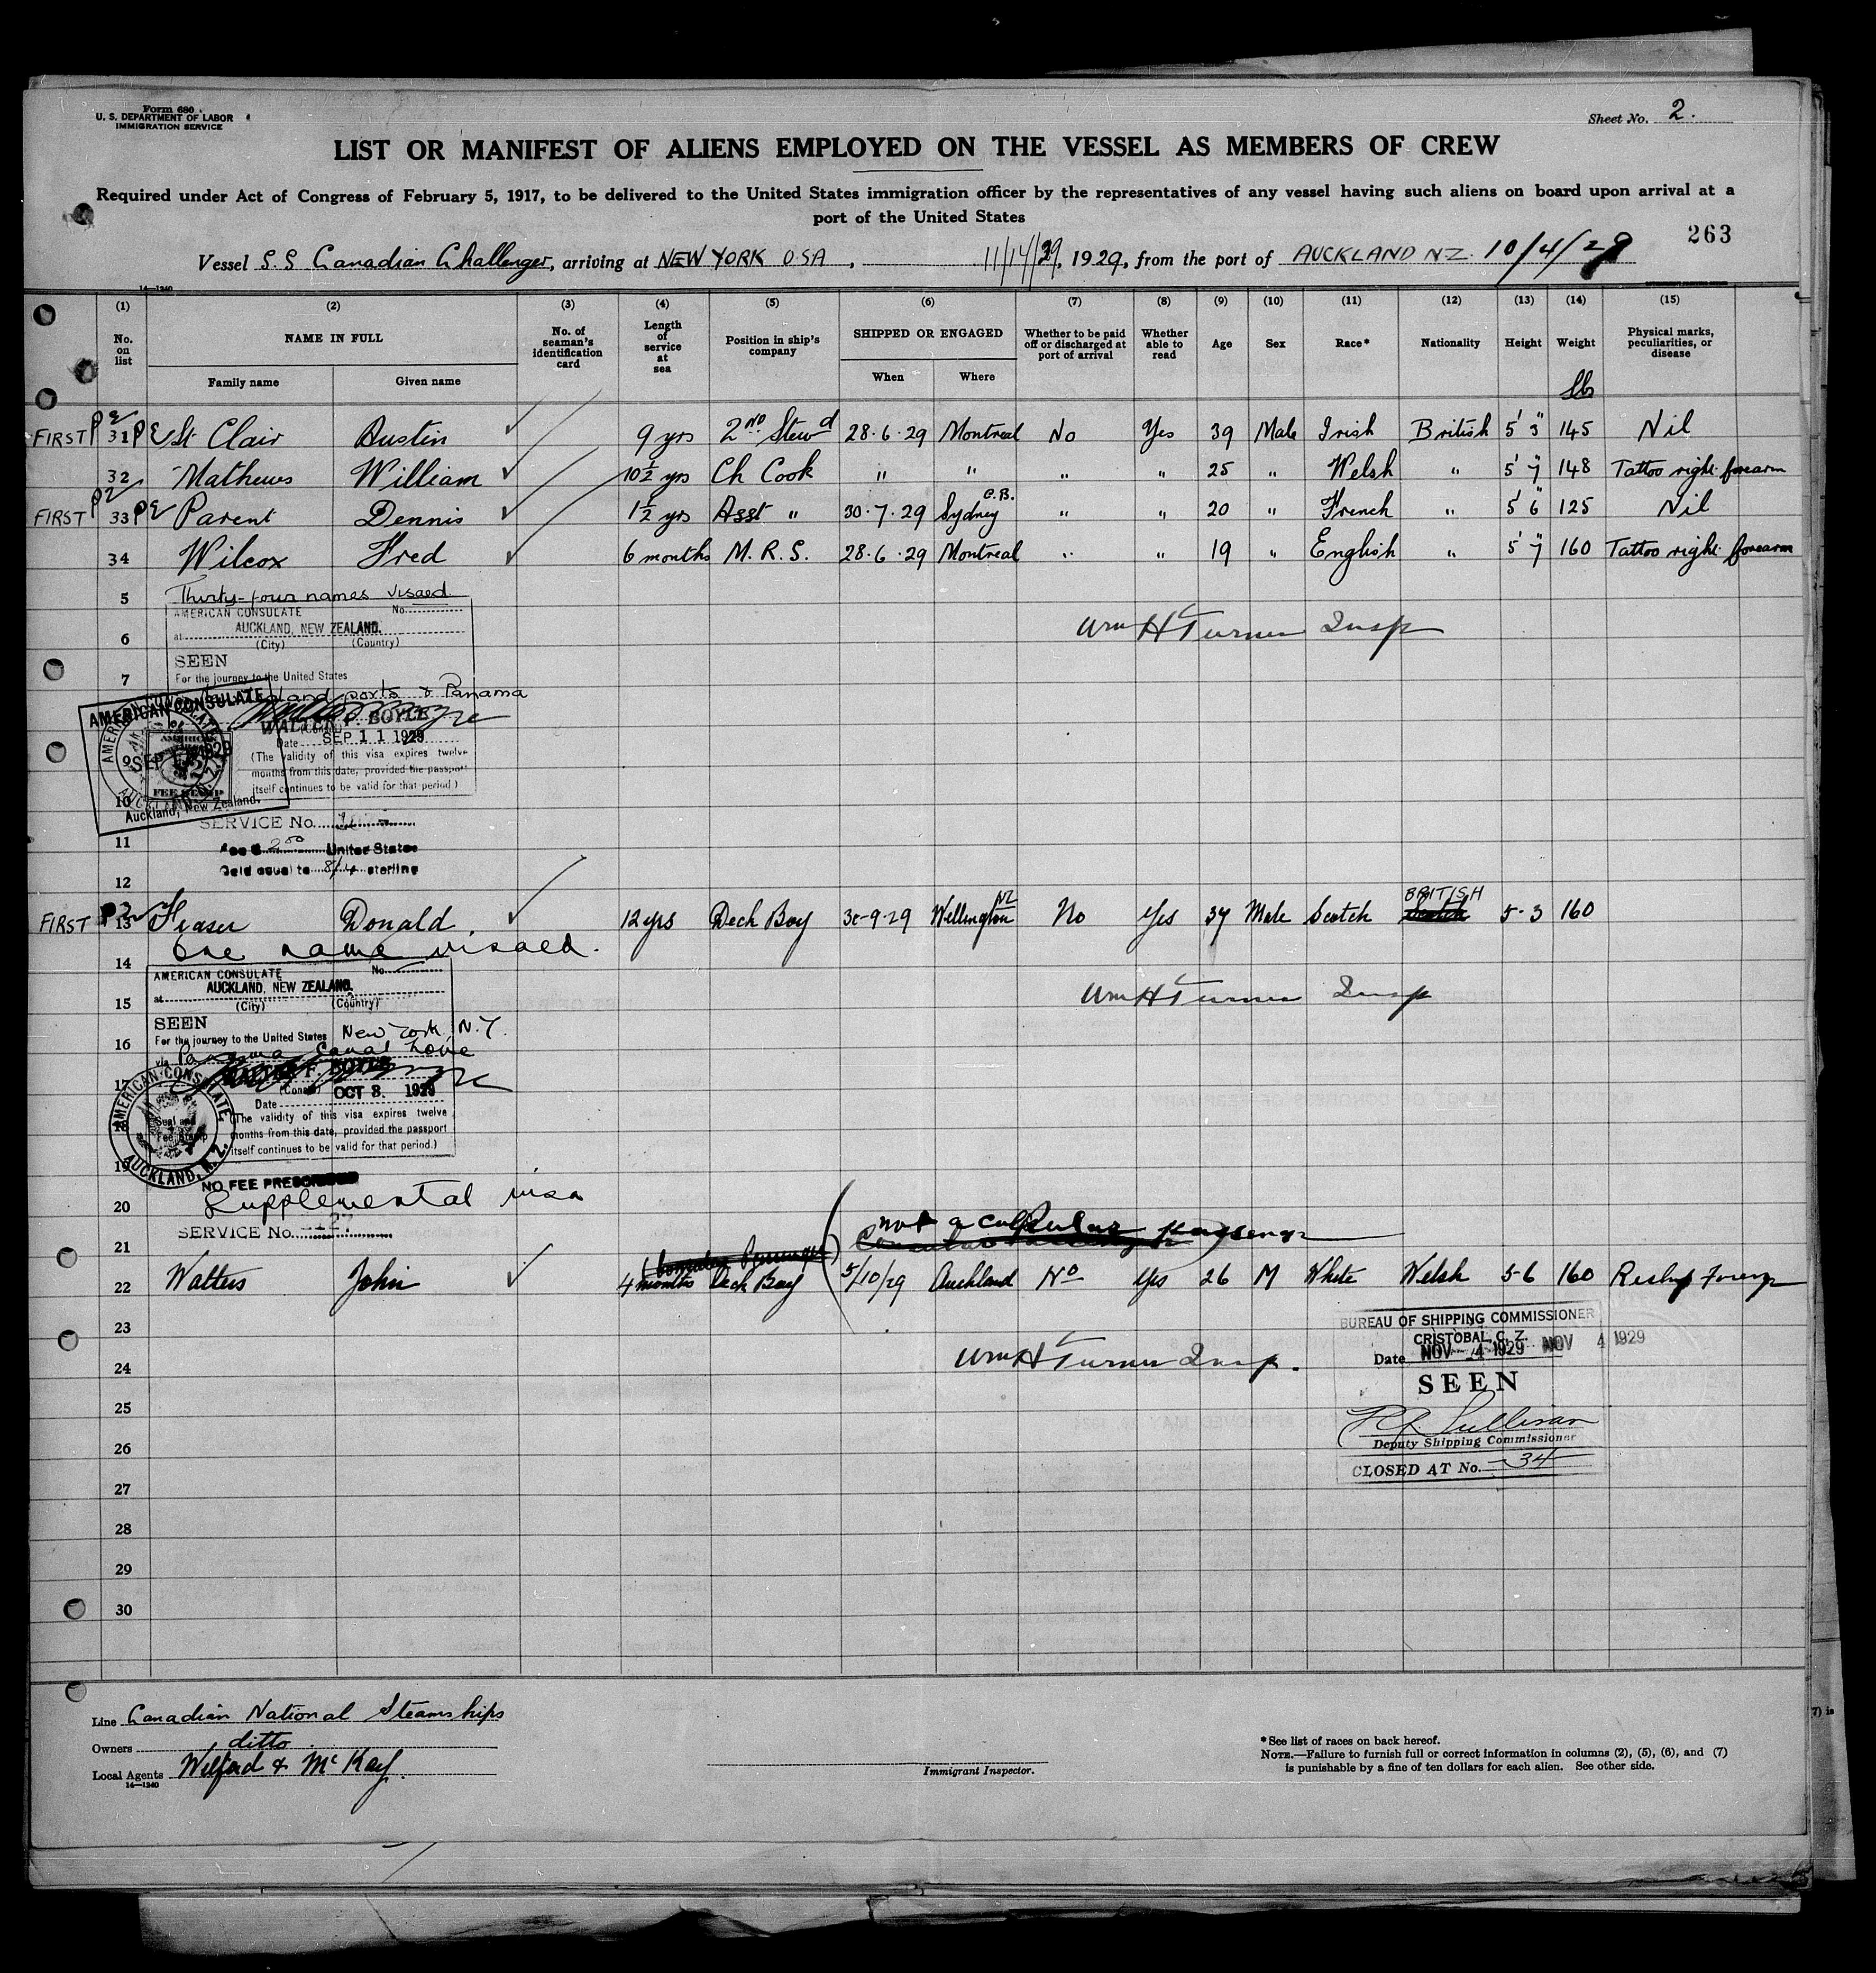 Form 680
U. S. DEPARTMENT OF LABOR
IMMIGRATION SERVICE
Sheet No. 2.
LIST OR MANIFEST OF ALIENS EMPLOYED ON THE VESSEL AS MEMBERS OF CREW
Required under Act of Congress of February 5, 1917, to be delivered to the United States immigration officer by the representatives of any vessel having such aliens on board upon arrival at a
port of the United States
263
Vessel S.S Canadian Challenger, arriving at NEW YORK USA, 11/14/29, 1929, from the port of AUCKLAND NZ. 10/4/29
14—1240
(1) (2) (3) (4) (5) (6) (7) (8) (9) (10) (11) (12) (13) (14) (15)
No. on list NAME IN FULL No. of seaman's identification card Length of service at sea Position in ship's company SHIPPED OR ENGAGED Whether to be paid off or discharged at port of arrival Whether able to read Age Sex Race* Nationality Height Weight Physical marks, peculiarities, or disease
Family name Given name When Where lbs
FIRST 31 St. Clair Austin 9 yrs 2ND Stewd 28.6.29 Montreal No Yes 39 Male Irish British 5' 3" 145 Nil
32 Mathews William 10½ yrs Ch Cook " " " " 25 " Welsh " 5' 7" 148 Tattoo right forearm
FIRST 33 Parent Dennis 1½ yrs Asst " 30.7.29 Sydney C.B. " " 20 " French " 5' 6" 125 Nil
34 Wilcox Fred 6 months M.R.S. 28.6.29 Montreal " " 19 " English " 5' 7" 160 Tattoo right forearm
5 Thirty-four names visaed
AMERICAN CONSULATE No.
at AUCKLAND, NEW ZEALAND.
6 (City) (Country)
Wm H Turner Insp
SEEN
7 For the journey to the United States
ports & Panama
AMERICAN CONSULATE
WALTER F. BOYLE
Date SEP 11 1929
(The validity of this visa expires twelve
months from this date, provided the passport
itself continues to be valid for that period.)
FEE STAMP
10
Auckland, New Zealand.
SERVICE No.
11
Fee $ 2.00 United States
Gold equal to 8/4 sterling
12
FIRST 13 Fraser Donald 12 yrs Deck Boy 30-9-29 Wellington NZ No Yes 37 Male Scotch BRITISH 5-3 160
One name visaed.
14
AMERICAN CONSULATE No.
AUCKLAND, NEW ZEALAND.
15 at (City) (Country)
Wm H Turner Insp
SEEN
For the journey to the United States New York N.Y.
16
via Panama Canal Zone
WALTER F. BOYLE
17 (Consul)
Date OCT 3. 1929
AMERICAN CONSULATE, AUCKLAND, N.Z.
Seal and Fee Stamp
18 (The validity of this visa expires twelve
months from this date, provided the passport
itself continues to be valid for that period.)
19
NO FEE PRESCRIBED
20 Supplemental visa
SERVICE No.
21 not a consular passenger
22 Walters John 4 months Deck Boy 5/10/29 Auckland No Yes 26 M White Welsh 5-6 160
23
24 Wm H Turner Insp.
BUREAU OF SHIPPING COMMISSIONER
CRISTOBAL, C. Z.
Date NOV 4 1929 NOV 4 1929
SEEN
25
Sullivan
Deputy Shipping Commissioner
26
CLOSED AT No. 34
27
28
29
30
Line Canadian National Steamships
Owners ditto
Local Agents Wilford & McKay.
14—1240
Immigrant Inspector.
*See list of races on back hereof.
NOTE.—Failure to furnish full or correct information in columns (2), (5), (6), and (7)
is punishable by a fine of ten dollars for each alien. See other side.
7) is